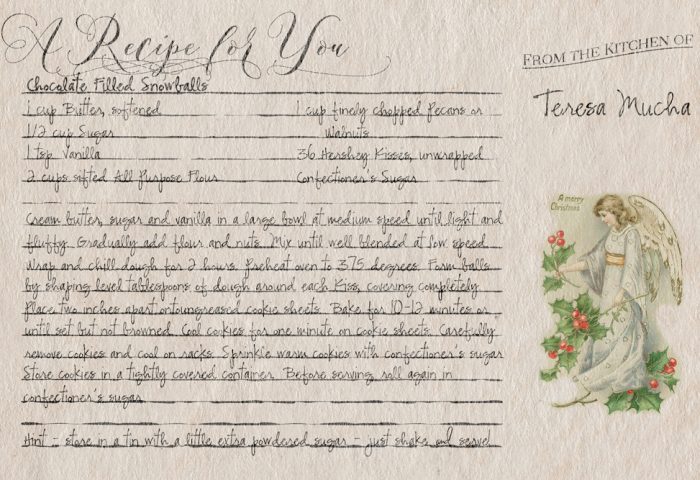 A Recipe for You
FROM THE KITCHEN OF
Teresa Mucha
Chocolate Filled Snowballs
1 cup Butter, softened
1/2 cup Sugar
1 tsp. Vanilla
2 cups sifted All Purpose Flour
1 cup finely chopped Pecans or
Walnuts
36 Hershey Kisses, unwrapped
Confectioner's Sugar
A merry
Christmas
Cream butter, sugar and vanilla in a large bowl at medium speed until light and
fluffy. Gradually add flour and nuts. Mix until well blended at low speed.
Wrap and chill dough for 2 hours. Preheat oven to 375 degrees. Form balls
by shaping level tablespoons of dough around each Kiss, covering completely.
Place two inches apart onto ungreased cookie sheets. Bake for 10-12 minutes or
until set but not browned. Cool cookies for one minute on cookie sheets. Carefully
remove cookies and cool on racks. Sprinkle warm cookies with confectioner's sugar.
Store cookies in a tightly covered container. Before serving roll again in
confectioner's sugar.
Hint - store in a tin with a little extra powdered sugar - just shake and serve!